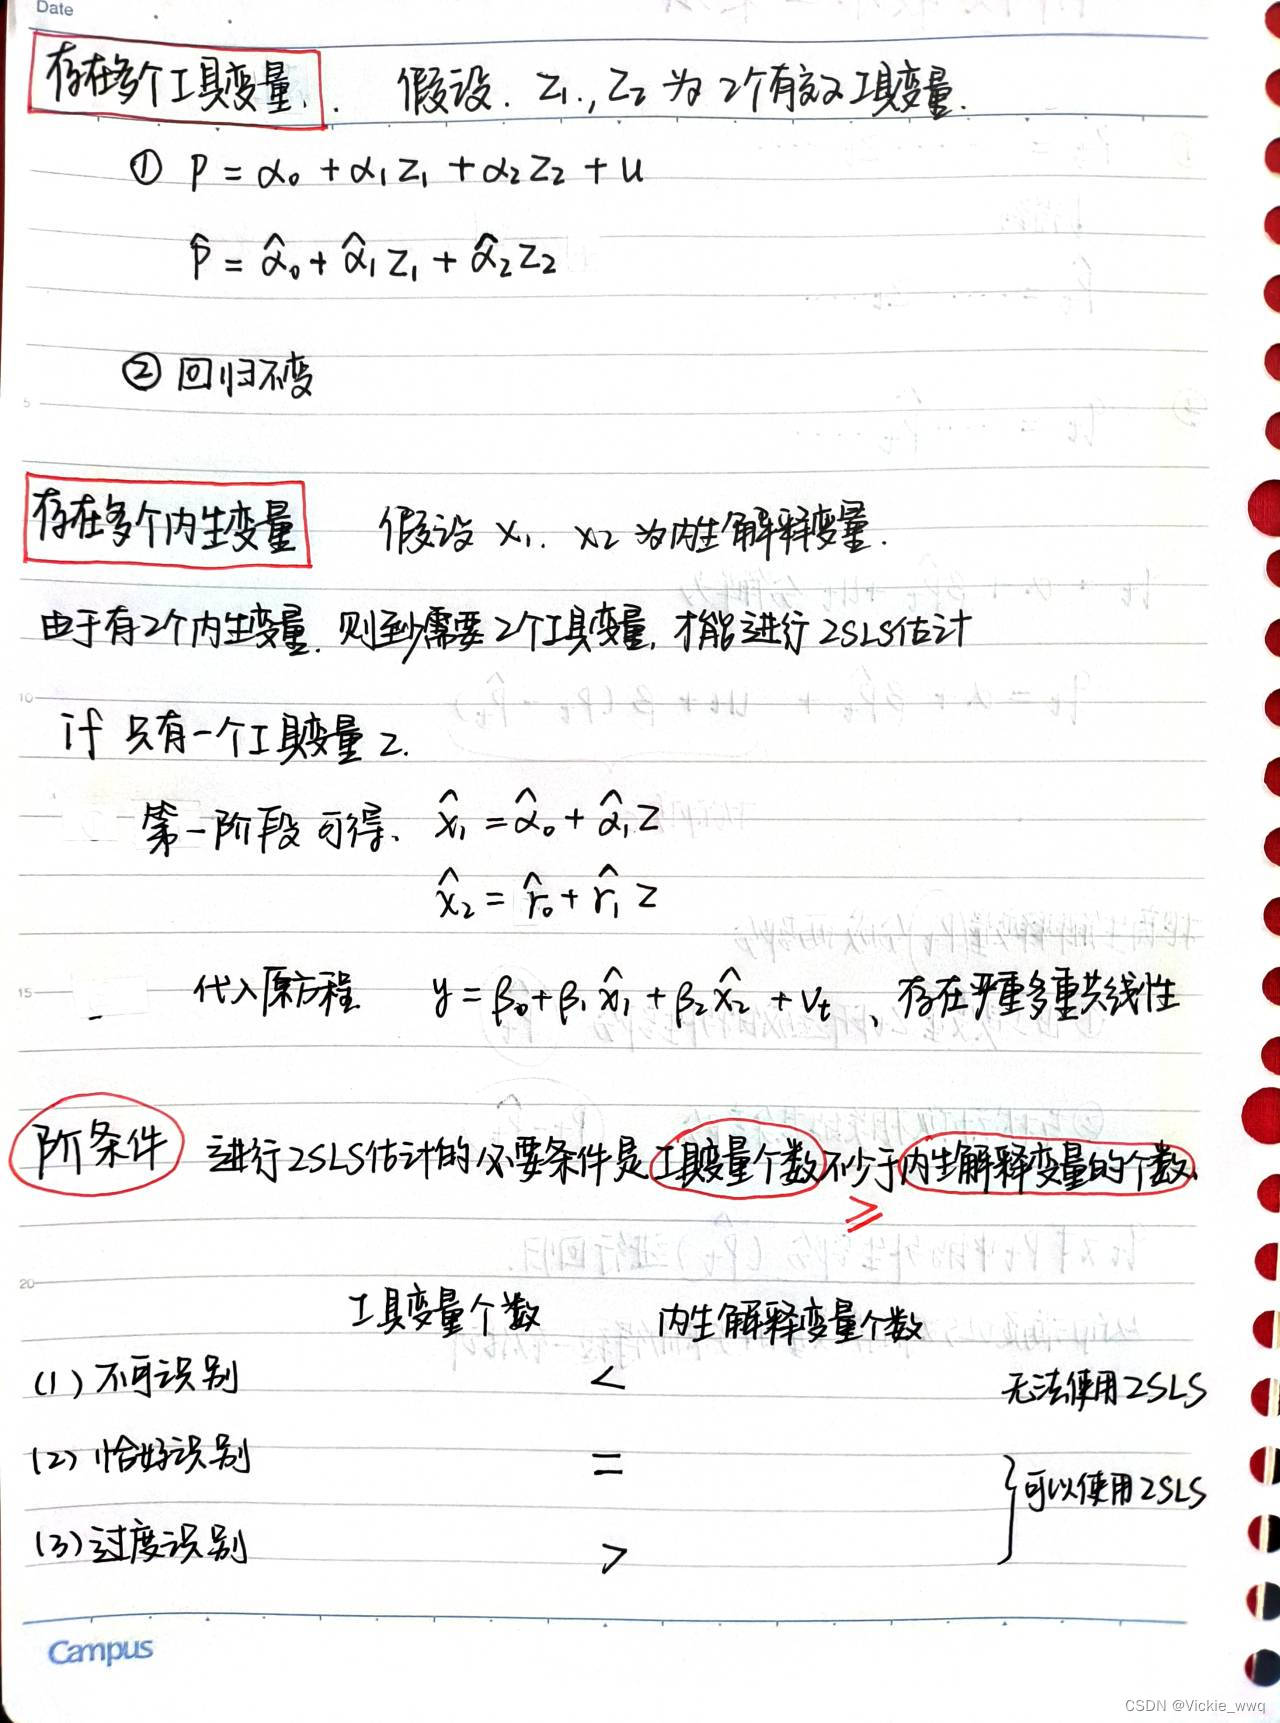 Date
存在多个工具变量. 假设. Z₁., Z₂ 为 2个有效工具变量.
① P = α₀ + α₁Z₁ + α₂Z₂ + u
P̂ = α̂₀ + α̂₁Z₁ + α̂₂Z₂
② 回归不变
5
存在多个内生变量 假设 x₁. x₂ 为内生解释变量.
由于有2个内生变量. 则至少需要2个工具变量, 才能进行2SLS估计
10
if 只有一个工具变量 Z.
第一阶段可得、 x̂₁ = α̂₀ + α̂₁Z
x̂₂ = r̂₀ + r̂₁Z
15 代入原方程. y = β₀+β₁x̂₁ + β₂x̂₂ + vₜ 、存在严重多重共线性
阶条件 进行2SLS估计的必要条件是工具变量个数不少于内生解释变量的个数.
≥
20
工具变量个数 内生解释变量个数
(1) 不可识别 < 无法使用2SLS
(2) 恰好识别 =
} 可以使用2SLS
(3) 过度识别 >
Campus
CSDN @Vickie_wwq